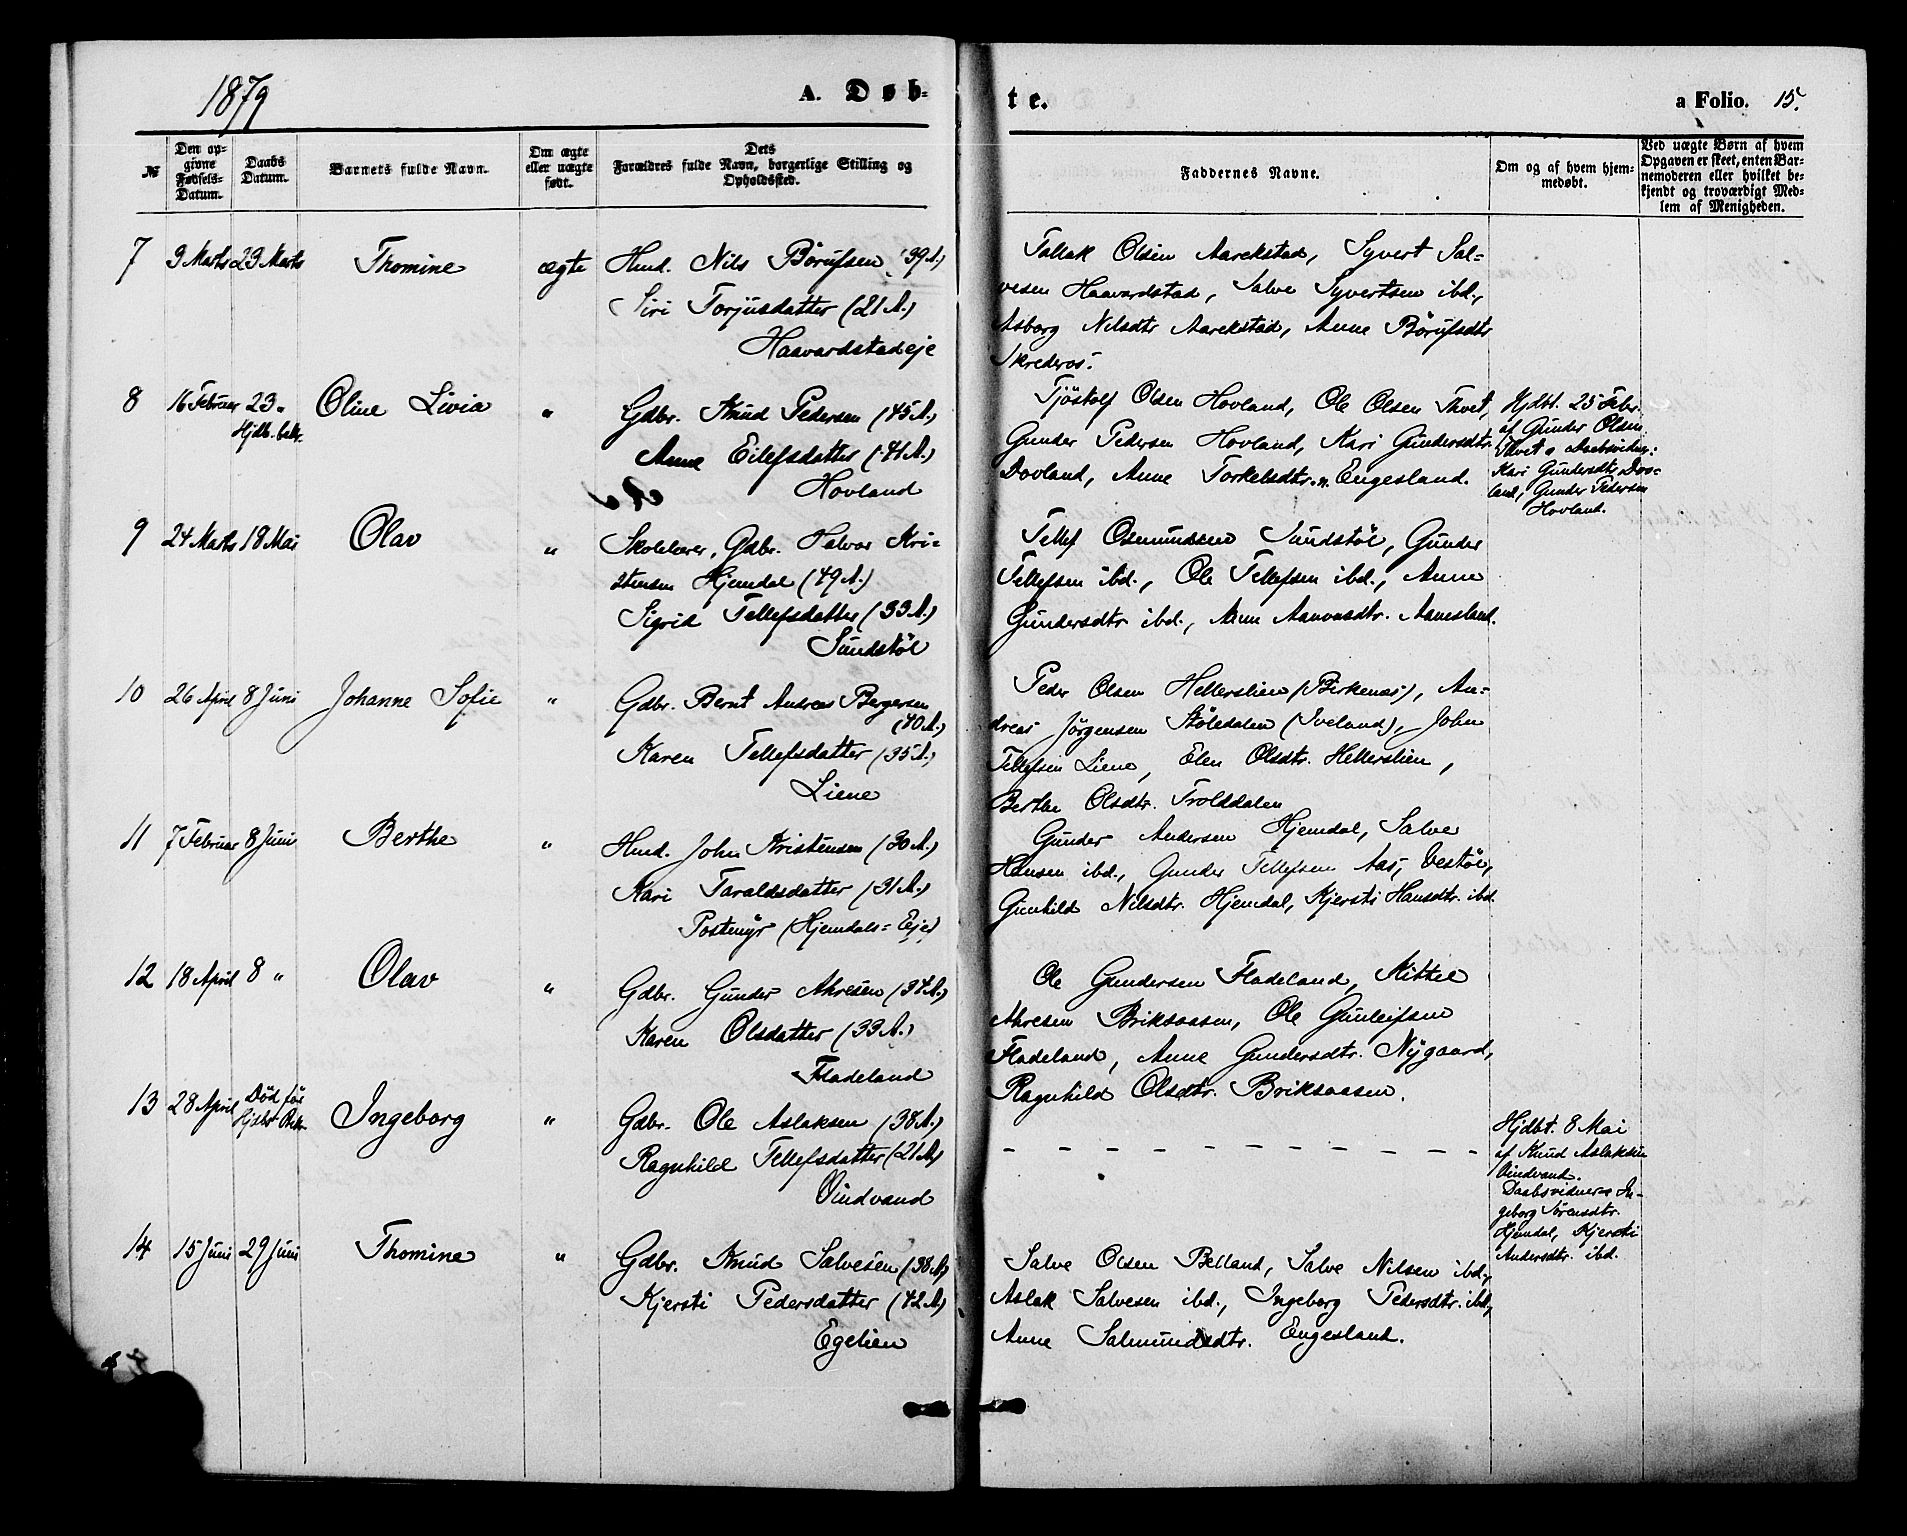 1879
A. Døb-
te.
a Folio. 15.
№
Den op-
givne
Fødsels-
Datum.
Daabs
Datum.
Barnets fulde Navn.
Om ægte
eller uægte
født.
Dets
Forældres fulde Navn, borgerlige Stilling og
Opholdssted.
Faddernes Navne.
Om og af hvem hjem-
medøbt.
Ved uægte Børn af hvem
Opgaven er skeet, enten Bar-
nemoderen eller hvilket be-
kjendt og troværdigt Med-
lem af Menigheden.
7 3 Marts 23 Marts Thomine ægte Hmd. Nils Børufsen (39 A.)
Siri Torjusdatter (21 A.)
Haavardstadeje
Tallak Olsen Aarekstad, Syvert Sal-
vesen Haavardstad, Salve Syvertsen ibd.,
Asborg Nilsdtr Aarekstad, Anne Børufsdtr
Skrederos.
8 16 Februar 23 " Oline Livia " Gdbr. Knud Pedersen (45 A.)
Hjdb. bekr.
Anne Eilefsdatter (41 A.)
Hovland
Tjöstolf Olsen Hovland, Ole Olsen Thvet,
Gunder Pedersen Hovland, Kari Gundersdtr.
Dovland, Anne Torkelsdtr. n. Engesland.
Hjdbt. 25 Febr.
af Gunder Olsen
Thvet Daabsvidner:
Kari Gundersdtr Dov-
land, Gunder Pedersen
Hovland.
9 24 Marts 18 Mai Olav " Skolelærer, Gdbr. Halvor Kri-
stensen Hjemdal (49 A.)
Sigrid Tellefsdatter (33 A.)
Sundstöl
Tellef Osmundsen Sundstöl, Gunder
Tellefsen ibd., Ole Tellefsen ibd., Anne
Gundersdtr ibd., Anne Aanonsdtr. Aamesland.
10 26 April 8 Juni Johanne Sofie " Gdbr. Bernt Andreas Bergersen
(40 A.)
Karen Tellefsdatter (35 A.)
Liene
Peder Olsen Hellerslien (Birkenæs), An-
dreas Jørgensen Stöledalen (Iveland), John
Tellefsen Liene, Elen Olsdtr. Hellerslien,
Berthe Olsdtr. Trolddalen
11 7 Februar 8 Juni Berthe " Hmd. John Kristensen (30 A.)
Kari Taraldsdatter (31 A.)
Postmyr (Hjemdals-Eje)
Gunder Andersen Hjemdal, Salve
Hansen ibd., Gunder Tellefsen Aas, Vestöl,
Gunhild Nilsdtr. Hjemdal, Kjersti Hansdtr. ibd.
12 18 April 8 " Olav " Gdbr. Gunder Akresen (34 A.)
Karen Olsdatter (33 A.)
Fladeland
Ole Gundersen Fladeland, Kittel
Akresen Briksaasen, Ole Gunleifsen
Fladeland, Anne Gundersdtr. Nygaard,
Ragnhild Olsdtr. Briksaasen.
13 28 April Död för Ingeborg " Gdbr. Ole Aslaksen (38 A.)
Hjdbs Bekr.
Ragnhild Tellefsdatter (21 A.)
Vindvand
Hjdbt. 8 Mai
af Knud Aslaksen
Vindvand.
Daabsvidnere In-
geborg Sörensdtr.
Hjemdal, Kjersti
Andersdtr. ibd.
14 15 Juni 29 Juni Thomine " Gdbr. Knud Salvesen (38 A.)
Kjersti Pedersdatter (42 A.)
Egelien
Salve Olsen Belland, Salve Nilsen ibd.,
Aslak Salvesen ibd., Ingeborg Pedersdtr. ibd.,
Anne Salmundsdtr. Engesland.